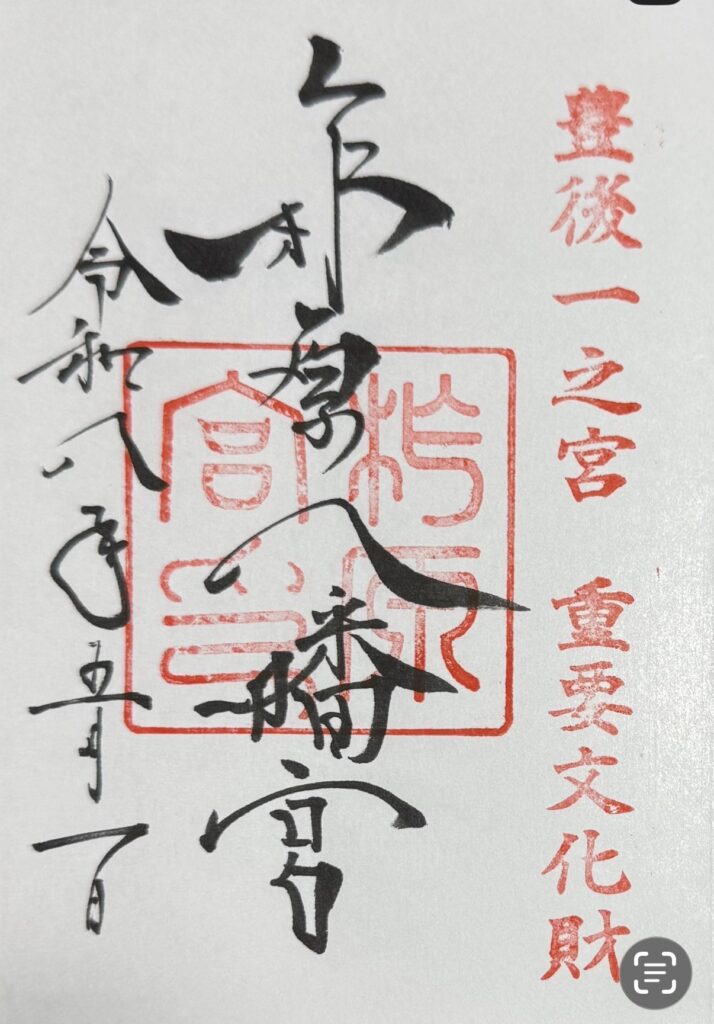 豊後一之宮 重要文化財
柞原八幡宮
柞原
宮印
令和八年五月一日